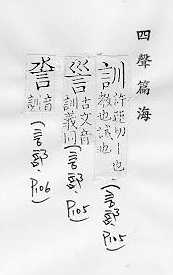 四聲篇海
訓 許運切丨也
教也誡也
(言部, P105)
古文音
訓義同
(言部, P105)
音
訓
(言部, P106)